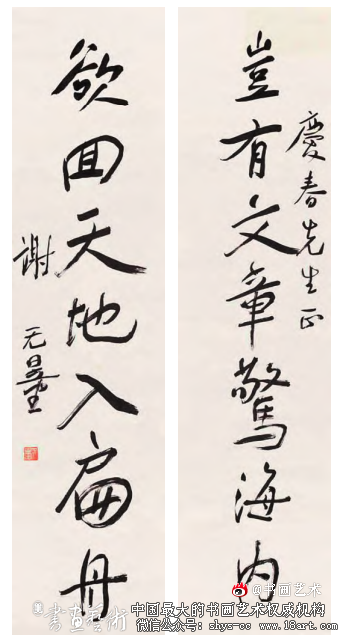 慶春先生正
豈有文章驚海内
欲回天地入扁舟
謝无量
@书画艺术
書画藝術
中国最大的书画艺术权威机构
微信公众号：shys-cc www.18art.com